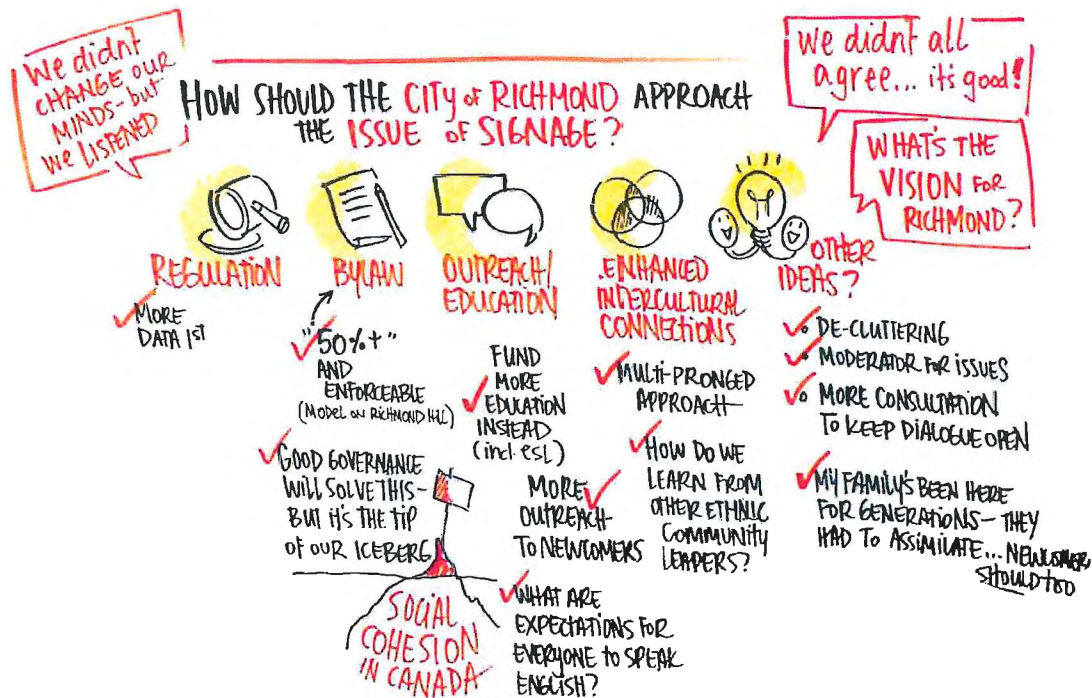 We didn't
CHANGE OUR
MINDS - but
We LISTENED
HOW SHOULD THE CITY of RICHMOND APPROACH
THE ISSUE OF SIGNAGE?
We didn't all
agree... it's good!
WHAT'S THE
VISION FOR
RICHMOND?
REGULATION
MORE
DATA 1st
BYLAW
"50%+"
AND
ENFORCEABLE
(MODEL ON RICHMOND HILL)
GOOD GOVERNANCE
WILL SOLVE THIS -
BUT it's THE TIP
OF OUR ICEBERG
SOCIAL
COHESION
IN CANADA
OUTREACH/
EDUCATION
FUND
MORE
EDUCATION
INSTEAD
(incl. esl)
MORE
OUTREACH
TO NEWCOMERS
WHAT ARE
EXPECTATIONS FOR
EVERYONE TO SPEAK
ENGLISH?
ENHANCED
INTERCULTURAL
CONNECTIONS
MULTI-PRONGED
APPROACH
HOW DO WE
LEARN FROM
OTHER ETHNIC
COMMUNITY
LEADERS?
OTHER
IDEAS?
• DE-CLUTTERING
• MODERATOR FOR ISSUES
• MORE CONSULTATION
TO KEEP DIALOGUE OPEN
MY FAMILY'S BEEN HERE
FOR GENERATIONS - THEY
HAD TO ASSIMILATE... NEWCOMERS
SHOULD TOO